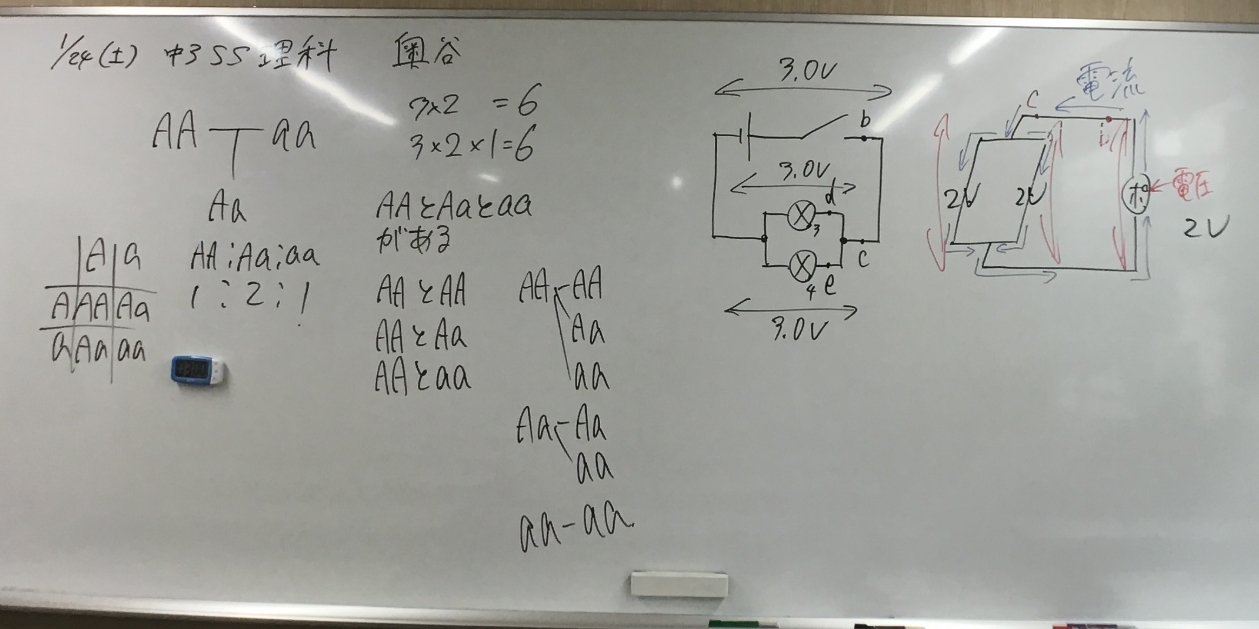 1/24(土) 中3 SS 理科 奥谷
AA aa
Aa
AA:Aa:aa
1:2:1
A a
A AA Aa
a Aa aa
3×2 =6
3×2×1=6
AAとAaとaa
がある
AAとAA
AAとAa
AAとaa
AA-AA
Aa
aa
Aa-Aa
aa
aa-aa
3.0V
b
3.0V
d
3
c
4 e
3.0V
電流
c
i
2V 2V
ポ
電圧
2V